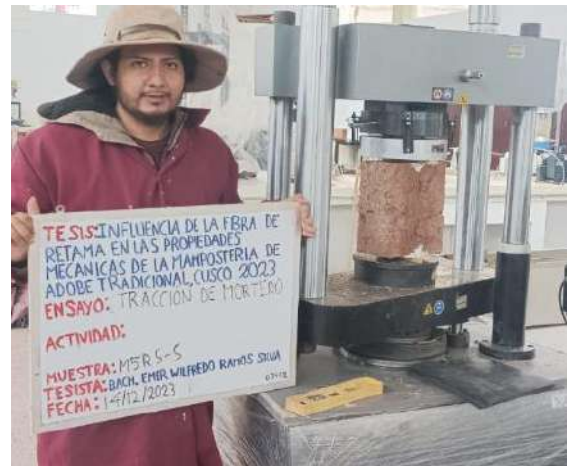 TESIS: INFLUENCIA DE LA FBRA DE
RETAMA EN LAS PROPIEDADES
MECANICAS DE LA MAMPOSTERIA DE
ADOBE TRADICIONAL, CUSCO 2023
ENSAYO: TRACCION DE MORTERO
ACTIVIDAD:
MUESTRA: M5R5-5
TESISTA: BACH. EMER WILFREDO RAMOS SILVA
FECHA: 14/12/2023